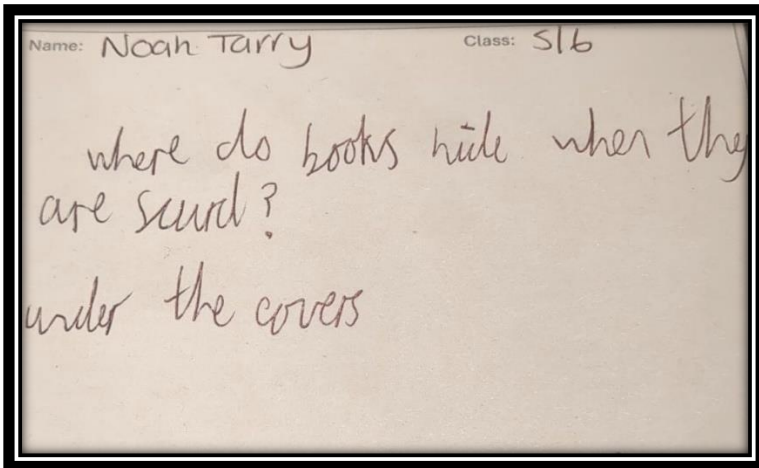 Name: Noah Tarry Class: S1b
where do books hide when they
are scurd?
under the covers